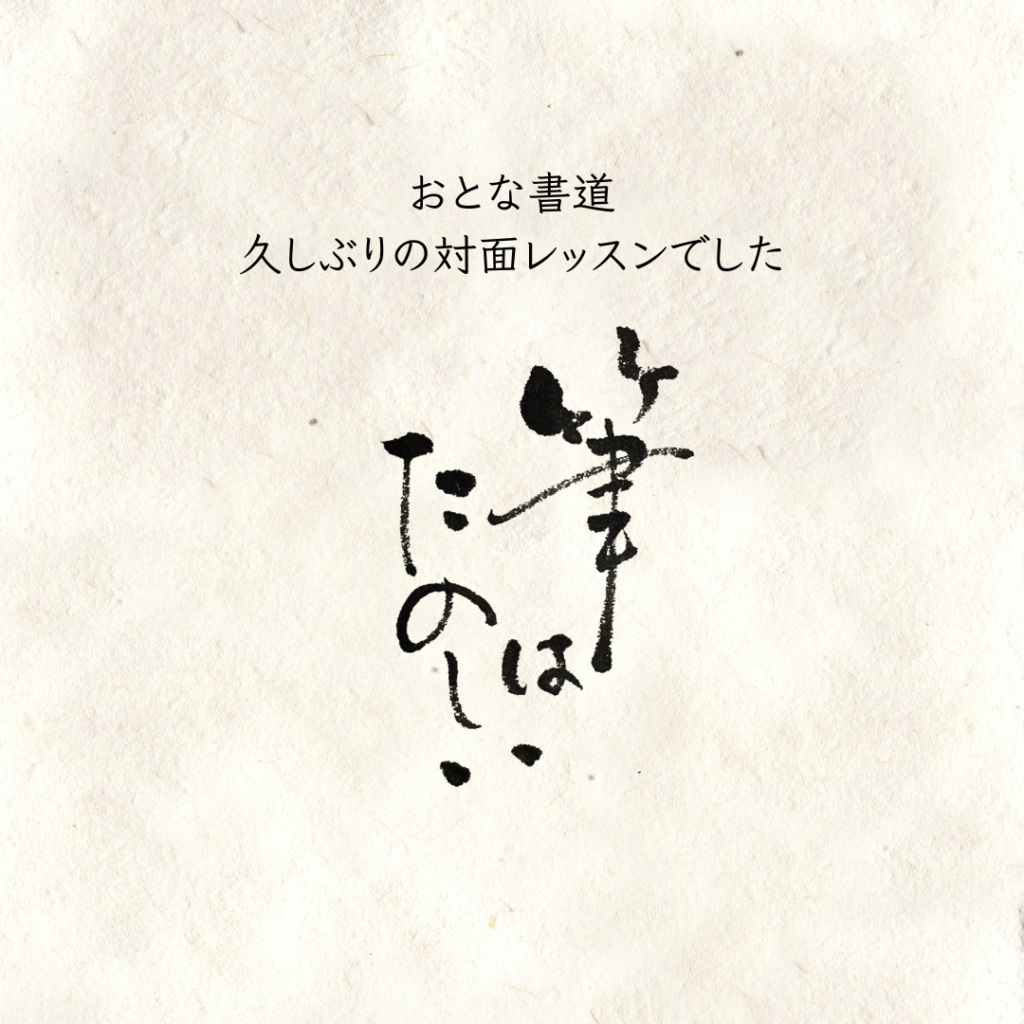 おとな書道
久しぶりの対面レッスンでした
筆は
たのしい